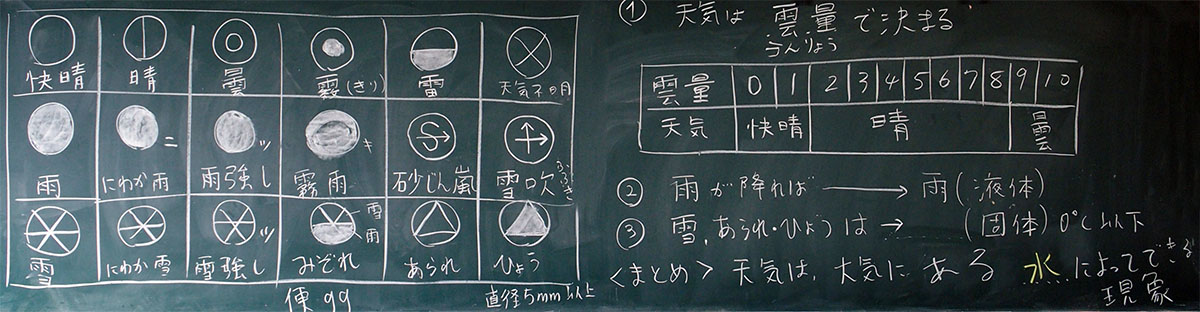 快晴 晴 曇 霧(きり) 雷 天気不明
= ッ キ
雨 にわか雨 雨強し 霧雨 砂じん嵐 雪吹ふぶき
ッ 雪 雨
雪 にわか雪 雪強し みぞれ あられ ひょう
便99 直径5mm以上
① 天気は 雲量で決まる
うんりょう
雲量 0 1 2 3 4 5 6 7 8 9 10
天気 快晴 晴 曇
② 雨が降れば → 雨(液体)
③ 雪、あられ・ひょうは → (固体) 0℃以下
<まとめ> 天気は、大気にある 水 によってできる
現象